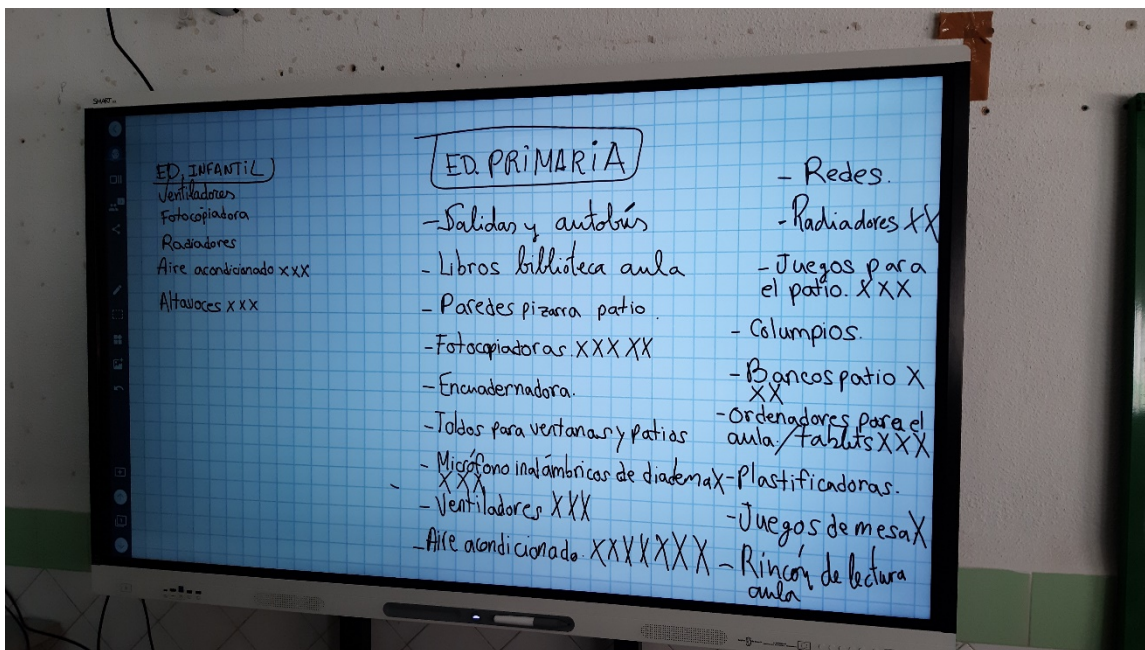 SMART
ED. INFANTIL
Ventiladores
Fotocopiadora
Radiadores
Aire acondicionado xxx
Altavoces xxx
ED. PRIMARIA
- Salidas y autobús
- Libros biblioteca aula
- Paredes pizarra patio.
- Fotocopiadoras. XXX XX
- Encuadernadora.
- Toldos para ventanas y patios
- Micrófono inalámbricos de diadema X
XXX
- Ventiladores XXX
- Aire acondicionado. XXXXXXX
- Redes.
- Radiadores XX
- Juegos para
el patio. XXX
- Columpios.
- Bancos patio X
XX
- Ordenadores para el
aula. / tablets XXX
- Plastificadoras.
- Juegos de mesa X
- Rincón de lectura
aula